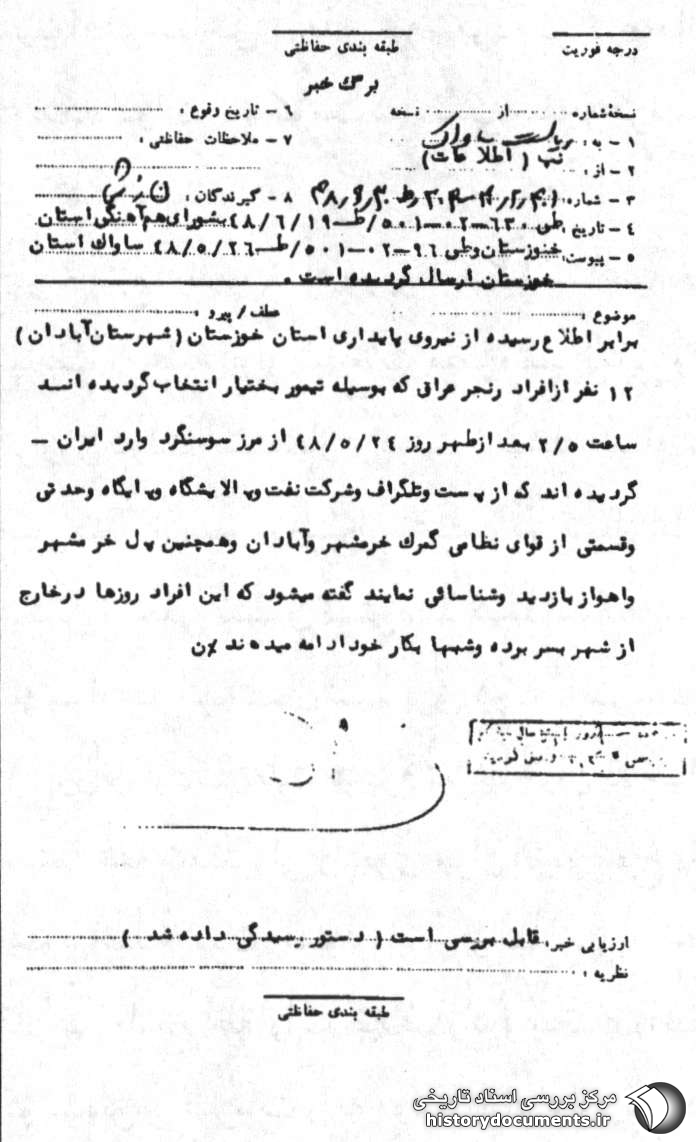 درجه فوریت
طبقه بندی حفاظتی
برگ خبر
نسخه شماره ........ از ........ نسخه
۱ - به : ریاست ساواک
۲ - از : نب ( اطلاعات )
۳ - شماره :
۴ - تاریخ :
۵ - پیوست :
۶ - تاریخ وقوع :
۷ - ملاحظات حفاظتی :
۸ - گیرندگان :
طی ۶۳۰-۰۲-۵۰۱/ط-۴۸/۶/۱۹ بشورای هم آهنگی استان
خنوزستان وطی ۹۶-۰۲-۵۰۱/ط-۴۸/۵/۲۶ ساواک استان
خوزستان ارسال گردیده است .
موضوع :
عطف / پیرو :
برابر اطلاع رسیده از نیروی پایداری استان خوزستان ( شهرستان آبادان )
۱۲ نفر ازافراد رنجر عراقی که بوسیله تیمور بختیار انتخاب گردیده اند
ساعت ۲/۵ بعد ازظهر روز ۴۸/۵/۲۴ از مرز سوسنگرد وارد ایران -
گردیده اند که از پست وتلگراف وشرکت نفت وپالایشگاه وپایگاه وحدتی
وقسمتی از قوای نظامی گمرک خرمشهر وآبادان وهمچنین پل خرمشهر
واهواز بازدید وشناسائی نمایند گفته میشود که این افراد روزها درخارج
از شهر بسر برده وشبها بکار خود ادامه میدهند
ارزیابی خبر : قابل بررسی است ( دستور رسیدگی داده شد )
نظریه :
طبقه بندی حفاظتی
مرکز بررسی اسناد تاریخی
historydocuments.ir